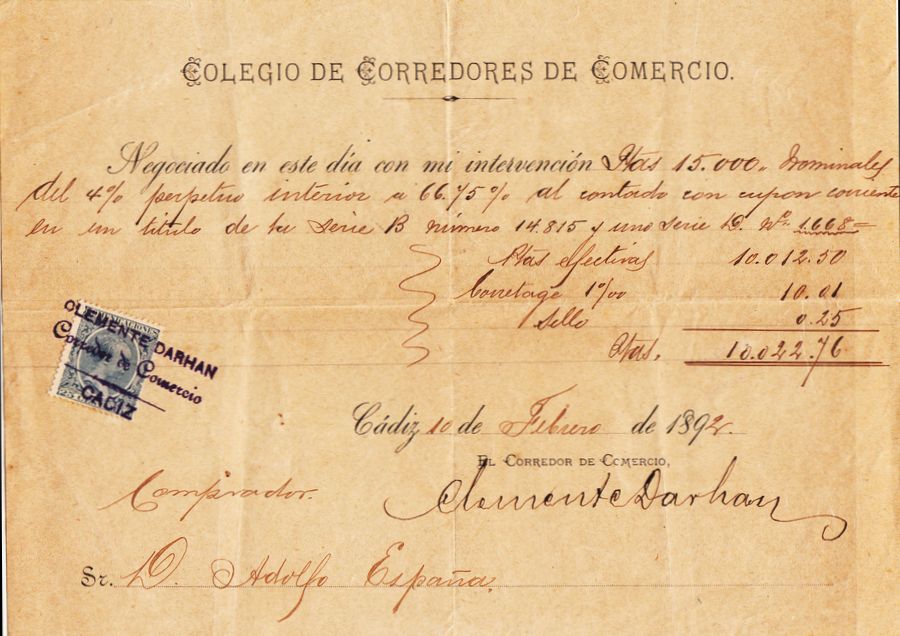 COLEGIO DE CORREDORES DE COMERCIO.
Negociado en este día con mi intervención Ptas 15.000,, Nominales
del 4% perpetuo interior a 66.75% al contado con cupon corriente
en un titulo de la serie B número 14.815 y uno serie D. Nº. 1.668=
Ptas efectivas 10.012.50
Corretage 1%00 10.01
Sello 0.25
Ptas. 10.022.76
CLEMENTE DARHAN
Corredor de Comercio
CADIZ
Cádiz 10 de Febrero de 1892.
EL CORREDOR DE COMERCIO,
Clemente Darhan
Comprador.
Sr. D. Adolfo España.